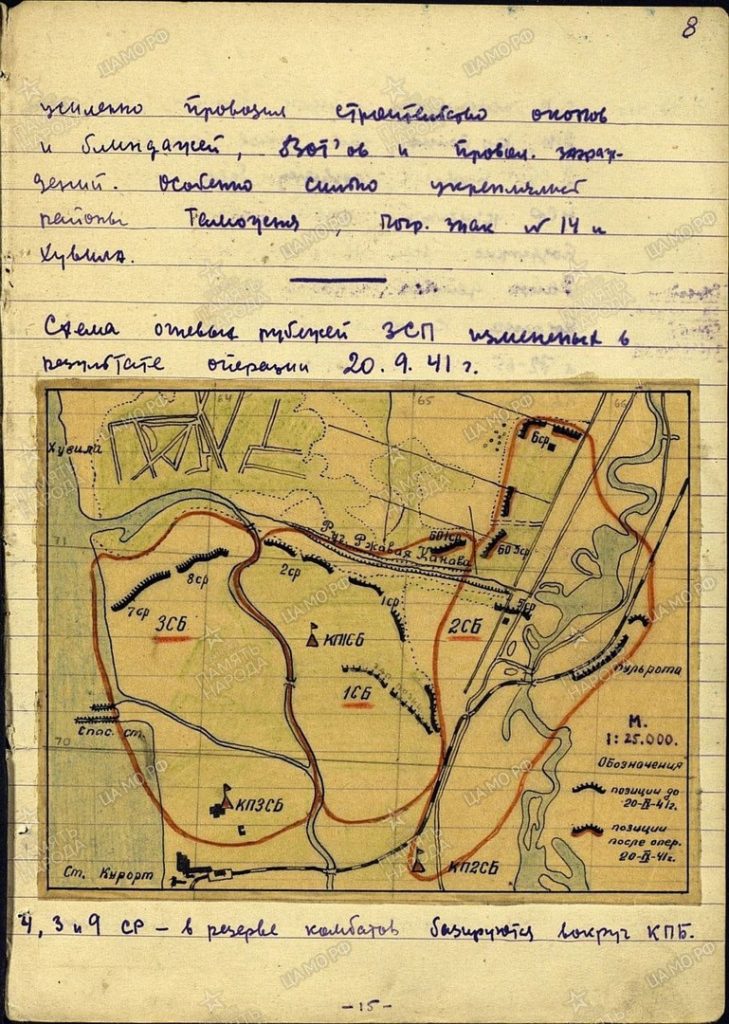 8
усиленно провозил строительство окопов
и блиндажей, ДЗОТ'ов и провол. заграж-
дений. Особенно сильно укреплялись
районы Таможня, Погр. знак № 14 и
Хувила.
Схема огневых рубежей 3СП измененых в
результате операции 20.9.41 г.
64 65 66
Хувила
6ср
71
Руч. Ржавая Канава
601ср
603ср
8ср
2ср
7ср
1ср
5ср
3СБ
КП1СБ
2СБ
1СБ
Пульрота
М.
1:25.000.
Спас. ст.
70
Обозначения
позиции до
20-IX-41г.
позиции
после опер.
20-IX-41г.
КП3СБ
Ст. Курорт
КП2СБ
4, 3 и 9 СР – в резерве комбатов базируются вокруг КПБ.
-15-
ПАМЯТЬ
НАРОДА
ЦАМО.РФ